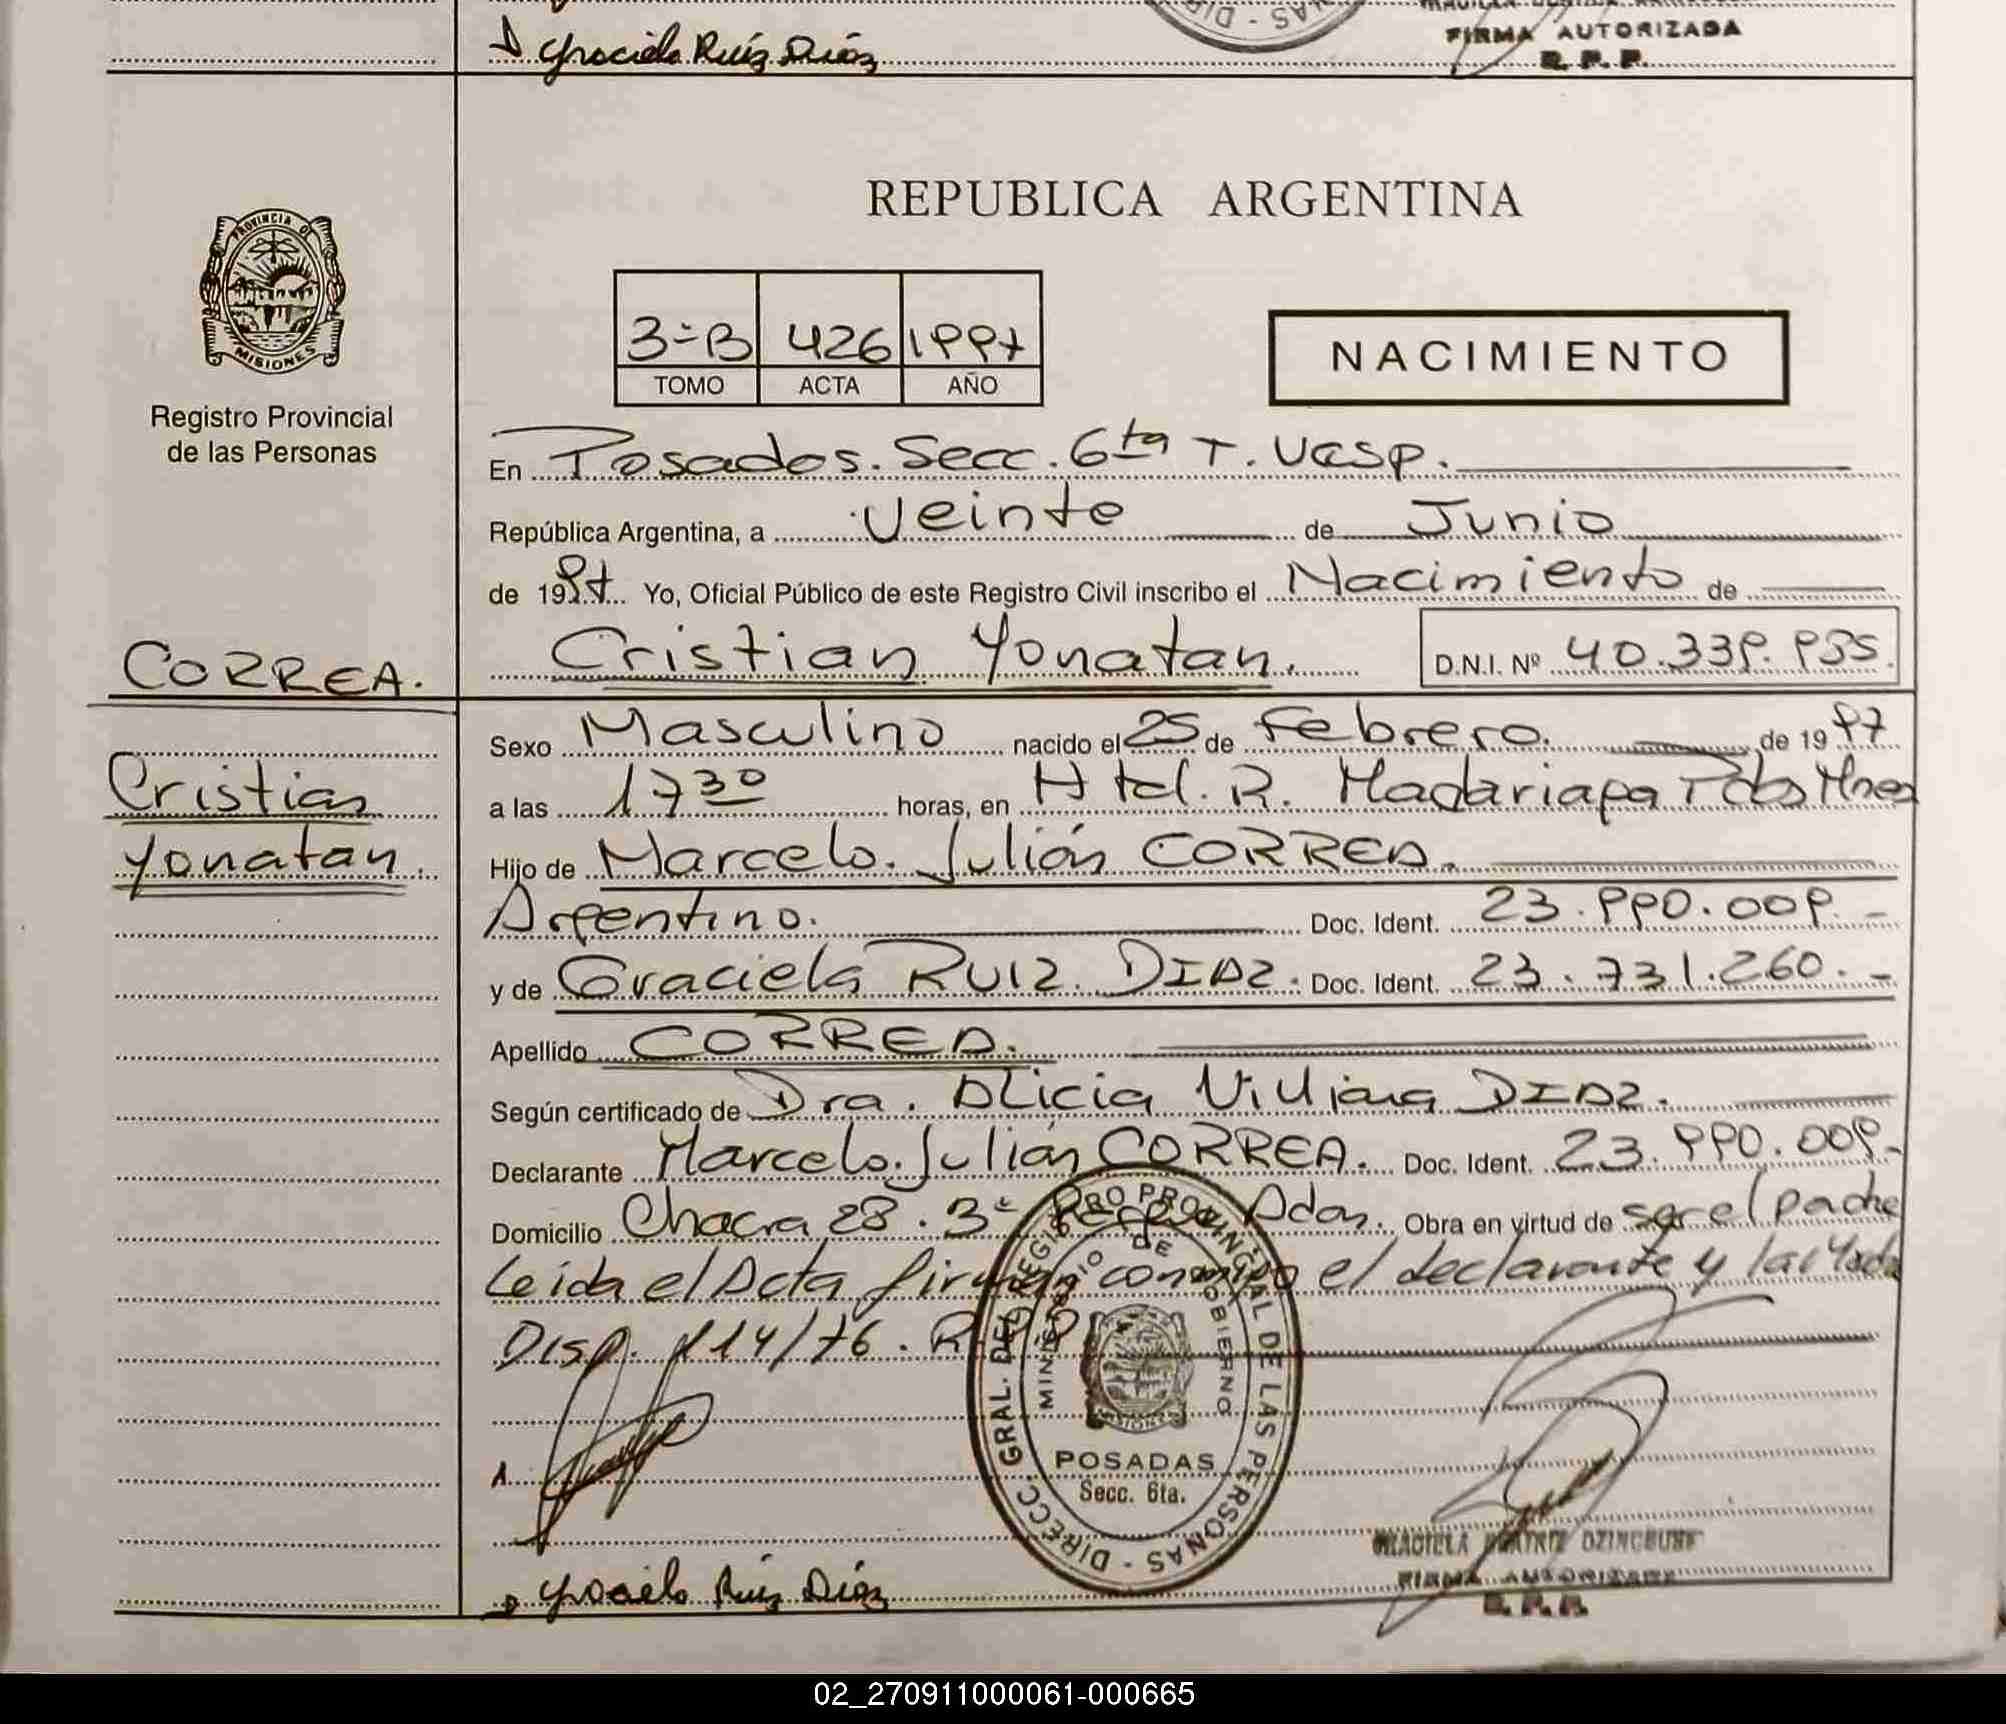 Graciela Ruíz Díaz
FIRMA AUTORIZADA
R. P. P.
PROVINCIA DE
MISIONES
Registro Provincial
de las Personas
REPUBLICA ARGENTINA
3-B 426 1997
TOMO ACTA AÑO
NACIMIENTO
En Posadas. Secc. 6ta T. Vesp.
República Argentina, a Veinte de Junio
de 1997 Yo, Oficial Público de este Registro Civil inscribo el Nacimiento de
Cristian Yonatan. D.N.I. Nº 40.339.935.
CORREA.
Cristian
Yonatan.
Sexo Masculino nacido el 25 de Febrero. de 1997
a las 17 30 horas, en Htal. R. Madariaga Pdas Mnes
Hijo de Marcelo. Julián CORREA.
Argentino. Doc. Ident. 23.990.009.-
y de Graciela RUIZ. DIAZ. Doc. Ident. 23.731.260.-
Apellido CORREA.
Según certificado de Dra. Alicia Viviana DIAZ.
Declarante Marcelo. Julián CORREA. Doc. Ident. 23.990.009.-
Domicilio Chacra 28. 3º Pdas. Obra en virtud de ser el padre
Leída el Acta firman conmigo el declarante y la citada
Disp. 114/76. R.P.P.
DIRECC. GRAL. DEL REGISTRO PROVINCIAL DE LAS PERSONAS
MINISTERIO DE GOBIERNO
POSADAS
Secc. 6ta.
GRACIELA BEATRIZ
FIRMA AUTORIZADA
R. P. P.
Graciela Ruíz Díaz
02_270911000061-000665